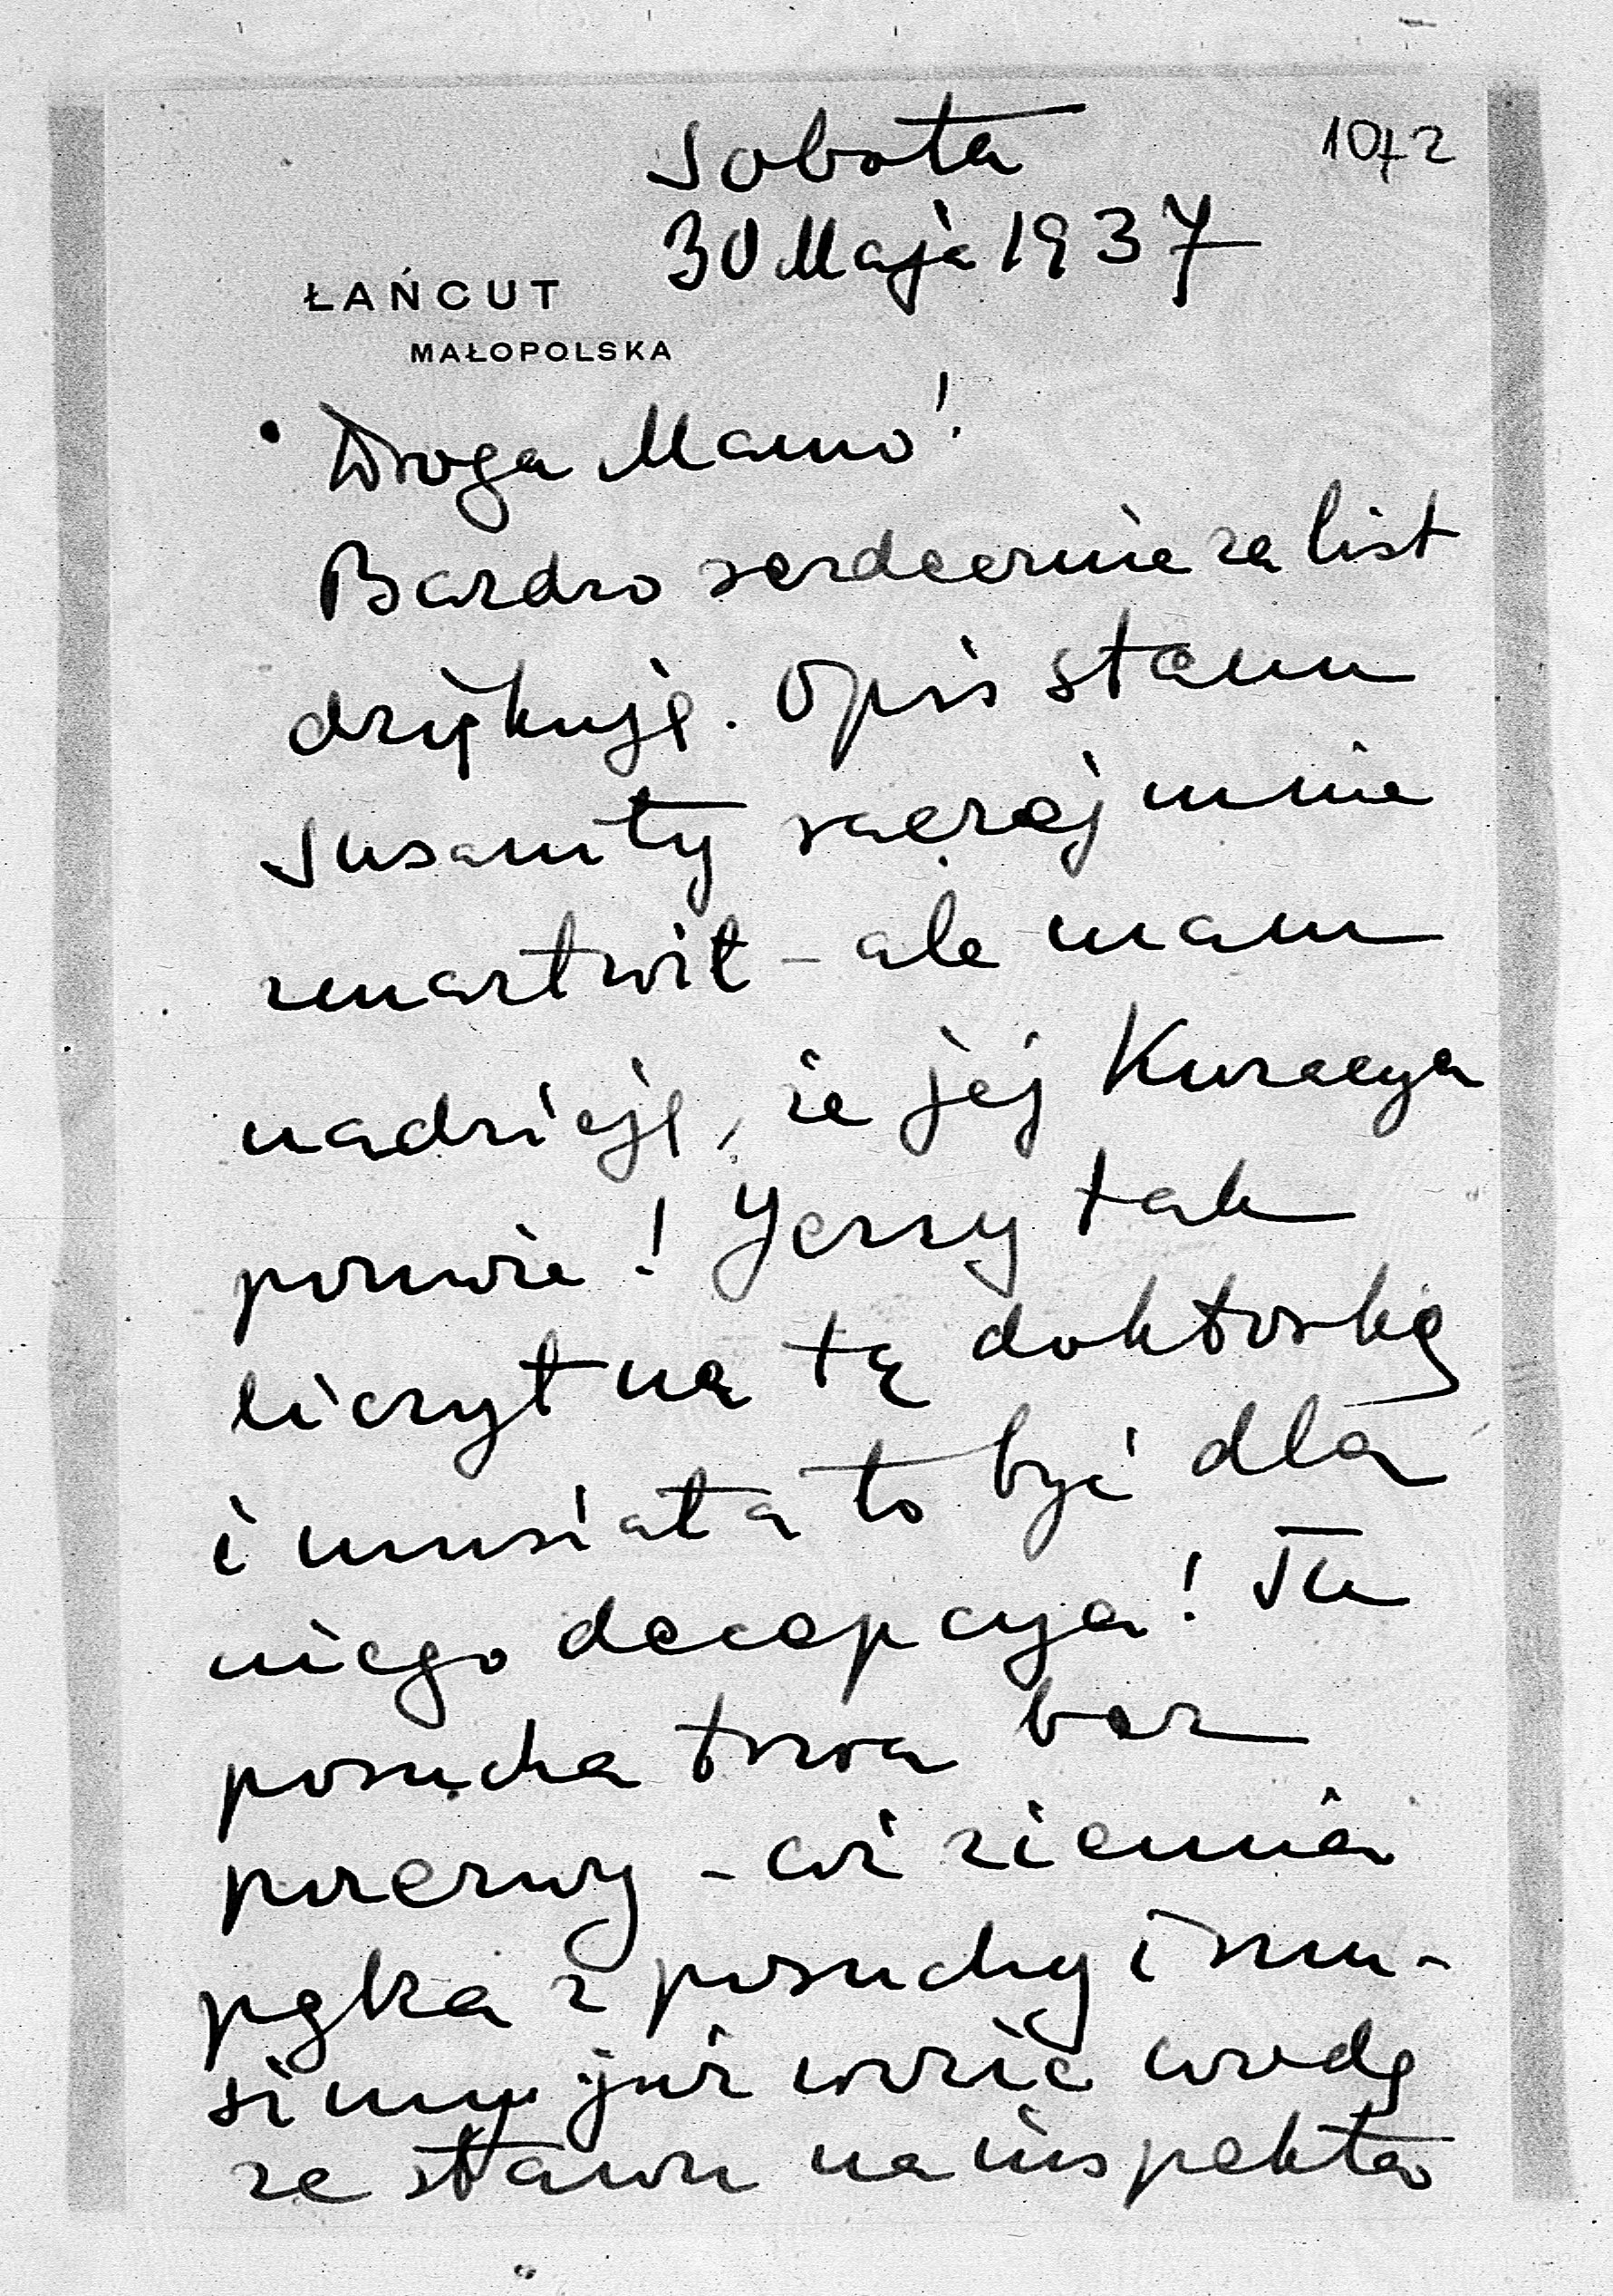 Sobota
1072
30 Maja 1937
ŁAŃCUT
MAŁOPOLSKA
Droga Mamo!
Bardzo serdecznie za list
dziękuję. Opis stanu
Susanity raczej mnie
zmartwił – ale mam
nadzieję, że jej Kuracya
pomoże! Jerzy tak
liczył na tę doktorkę
i musiała to być dla
niego decepcya! Tu
posucha trwa bez
przerwy – aż ziemia
pęka z posuchy i mu-
simy już wozić wodę
ze stawu na inspekta